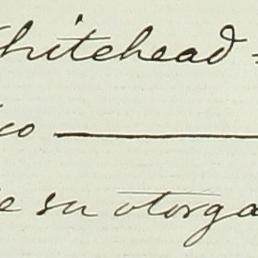 Whitehead
co
e su otorga